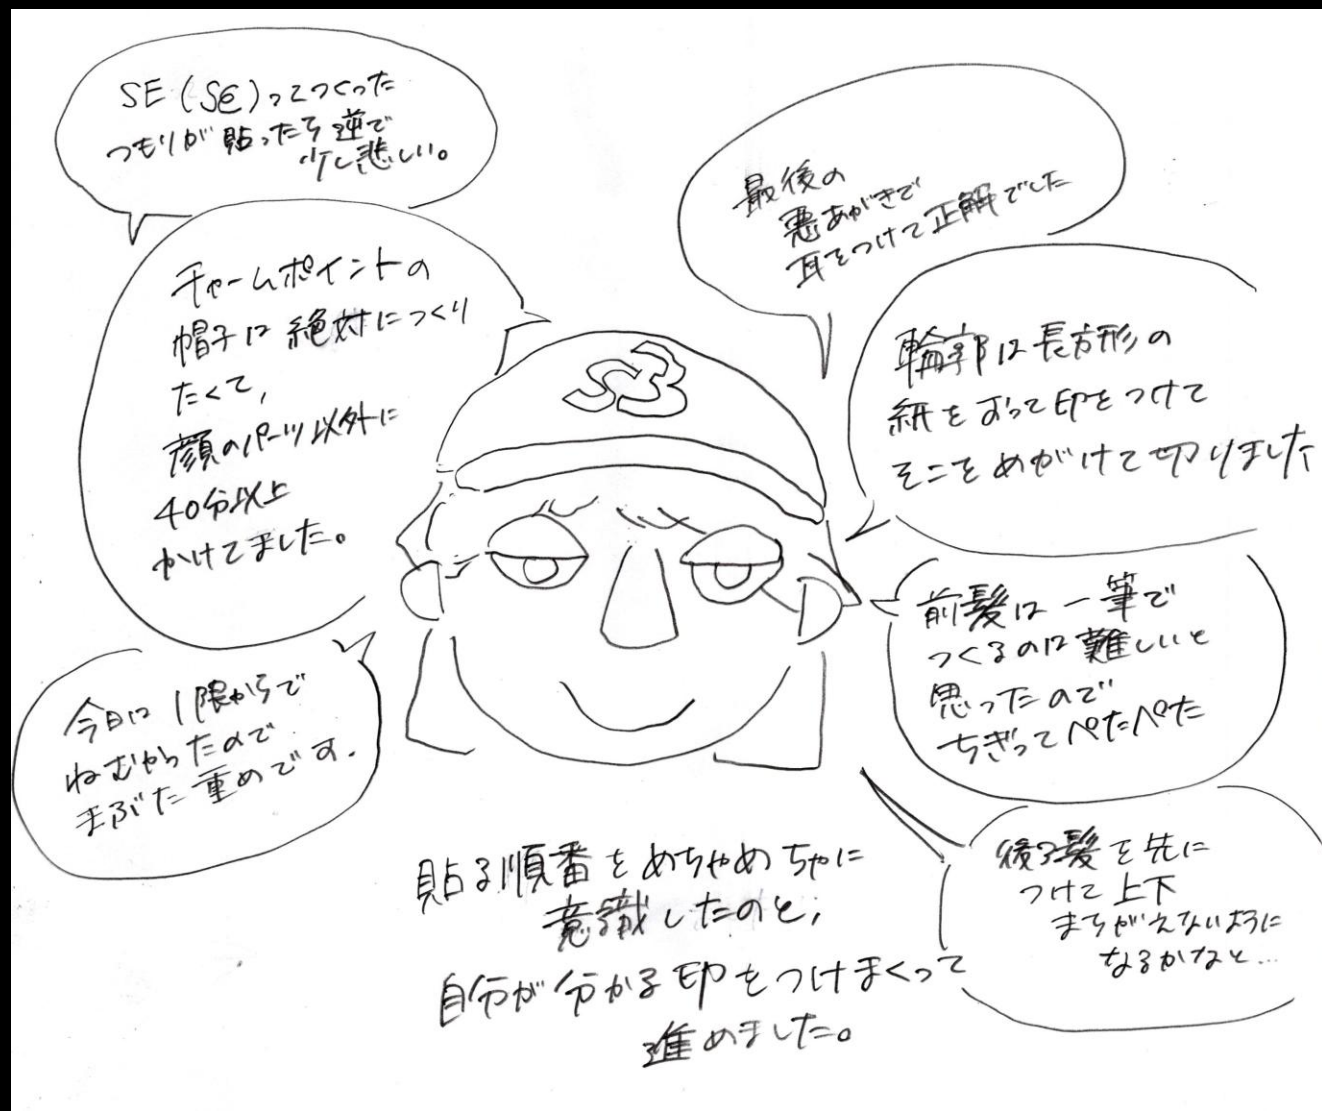 SE(Se)ってつくった
つもりが貼ったら逆で
少し悲しい。
チャームポイントの
帽子は絶対につくり
たくて、
顔のパーツ以外に
40分以上
かけてました。
今日は1限からで
ねむかったので
まぶた重めです.
最後の
悪あがきで
耳をつけて正解でした
輪郭は長方形の
紙をおって印をつけて
そこをめがけて切りました
前髪は一筆で
つくるのは難しいと
思ったので
ちぎってペたペた
後ろ髪を先に
つけて上下
まちがえないように
なるかなと…
貼る順番をめちゃめちゃに
意識したのと,
自分が分かる印をつけまくって
進めました。